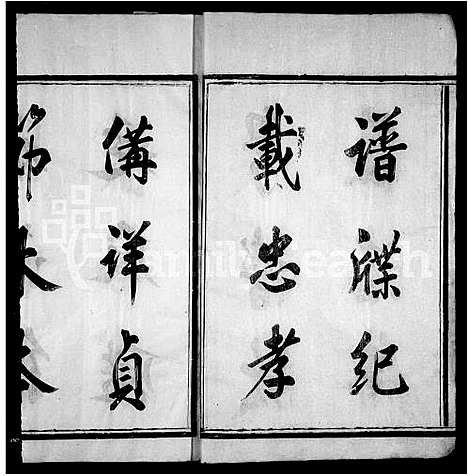 谱牒纪
載忠孝
備詳貞
節
FamilySearch